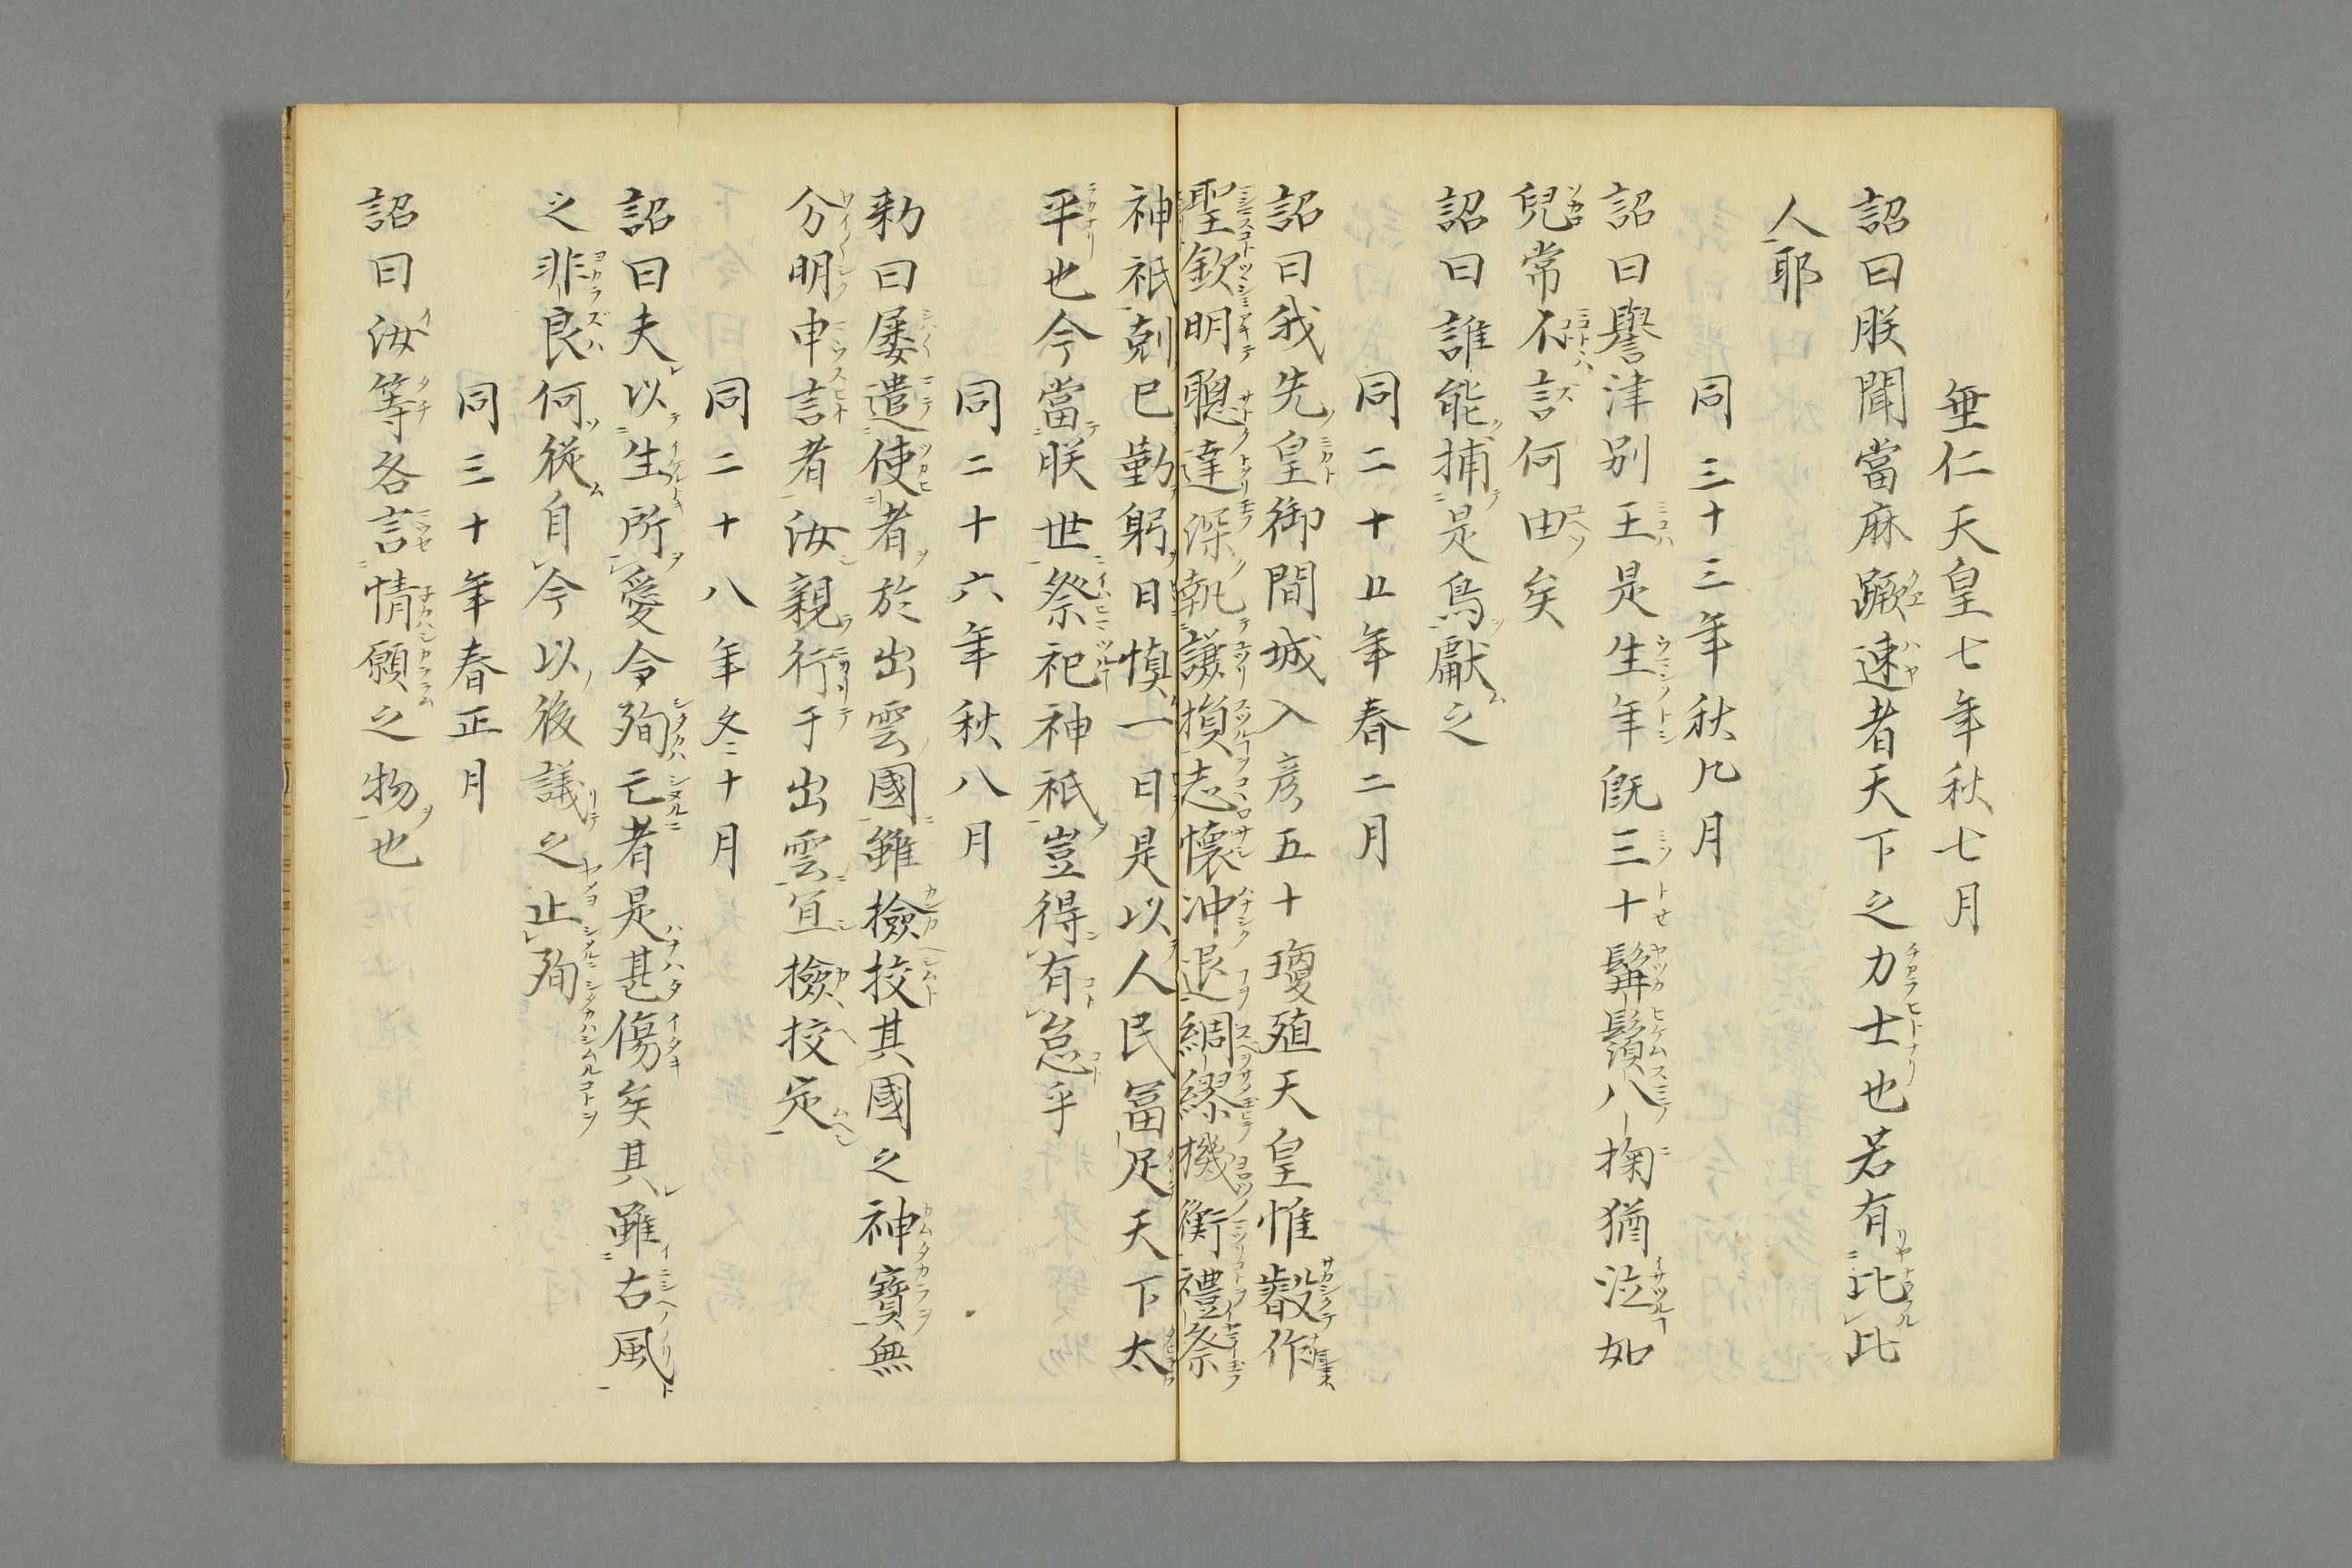 垂仁天皇七年秋七月
詔曰朕聞當麻蹶速者天下之力士也若有比此
人耶
同三十三年秋九月
詔曰譽津別王是生年既三十髯鬚八掬猶泣如
兒常不言何由矣
詔曰誰能捕是鳥獻之
同二十五年春二月
詔曰我先皇御間城入彦五十瓊殖天皇惟叡作
聖欽明聰達深執謙損志懷沖退綢繆機衡禮祭
神祇剋己勤躬日慎一日是以人民冨足天下太
平也今當朕世祭祀神祇豈得有怠乎
同二十六年秋八月
勅曰屡遣使者於出雲國雖檢挍其國之神寶無
分明申言者汝親行于出雲宜檢挍定
同二十八年冬十月
詔曰夫以生所愛令殉亡者是甚傷矣其雖古風
之非良何從自今以後議之止殉
同三十年春正月
詔曰汝等各言情願之物也